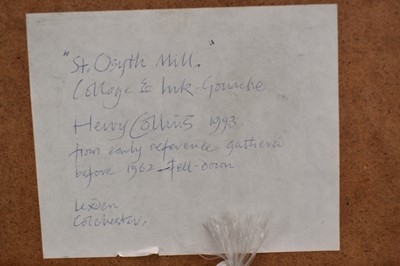 "St. Osyth Mill."
Collage & Ink-Gouache
Henry Collins 1993
from early reference gathered
before 1962 - Fell-Down
Lexden
Colchester.